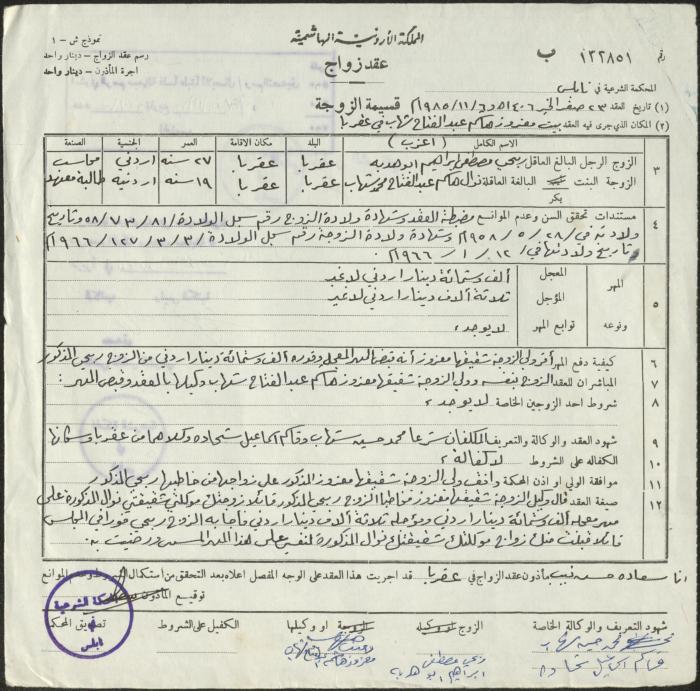 المملكة الأردنية الهاشمية
نموذج ش - ١
رسم عقد الزواج - دينار واحد
اجرة المأذون - دينار واحد
عقد زواج
ب
رقم ١٣٢٨٥١
المحكمة الشرعية في نابلس
(١) تاريخ العقد ٢٣ صفر الخير ١٤٠٦هـ و ٦/١١/١٩٨٥م قسيمة الزوجة
(٢) المكان الذي جرى فيه العقد بيت معزوز هاكم عبد الفتاح شهاب في عقربا
الاسم الكامل (اعزب) البلد مكان الاقامة العمر الجنسية الصنعة
٣ الزوج الرجل البالغ العاقل ربحي مصطفى ابراهيم ابو هدبه عقربا عقربا ٢٧ سنه اردني محاسب
الزوجة البنت البالغة العاقلة نوال هاكم عبد الفتاح محمد شهاب عقربا عقربا ١٩ سنه اردنيه طالبة معهد
بكر
٤ مستندات تحقق السن وعدم الموانع مضبطة العقد وشهادة ولادة الزوج رقم سجل الولادة ٥٨/٧٣/٨١ وتاريخ
ولادته في ٢٨/٥/١٩٥٨م وشهادة ولادة الزوجة رقم سجل الولادة ٣/٣/١٢٧/٩٦٦م
تاريخ ولادتها في ١٢/١/١٩٦٦م
٥ المهر المعجل ألف وستمائة دينار اردني لا غير
المؤجل ثلاثة ألاف دينار اردني لا غير
ونوعه توابع المهر لا يوجد
٦ كيفية دفع المهر أقر ولي الزوجة شقيقها معزوز أنه قبض المهر المعجل وقدره ألف وستمائة دينار اردني من الزوج ربحي المذكور
٧ المباشران للعقد الزوج بنفسه وولي الزوجة شقيقها معزوز هاكم عبد الفتاح شهاب وكيلها بالعقد وقبض المهر
٨ شروط احد الزوجين الخاصة لا يوجد
٩ شهود العقد والوكالة والتعريف المكلفان شرعا محمد حسين شهاب وقاسم اسماعيل شحاده وكلاهما من عقربا وسكانها
١٠ الكفالة على الشروط لا كفالة
١١ موافقة الولي او اذن المحكمة وافق ولي الزوجة شقيقها معزوز المذكور على زواجها من خاطبها ربحي المذكور
١٢ صيغة العقد قال وكيل الزوجة شقيقها معزوز مخاطبا الزوج ربحي المذكور قائلا زوجتك موكلتي شقيقتي نوال المذكورة على
مهر معجله ألف وستمائة دينار اردني ومؤجله ثلاثة ألاف دينار اردني فأجابه الزوج ربحي فورا في المجلس
قائلا قبلت منك زواج موكلتك شقيقتك نوال المذكورة لنفسي على هذا المهر المسمى ورضيت به
انا سعاده حسن مأذون عقد الزواج في عقربا قد اجريت هذا العقد على الوجه المفصل اعلاه بعد التحقق من استكمال الشروط وعدم الموانع
توقيع المأذون
شهود التعريف والوكالة الخاصة الزوج او وكيله الزوجة او وكيلها الكفيل على الشروط تصديق المحكمة
محمد حسين شهاب
قاسم اسماعيل شحاده
ربحي مصطفى
ابراهيم ابو هدبه
المحكمة الشرعية
نابلس